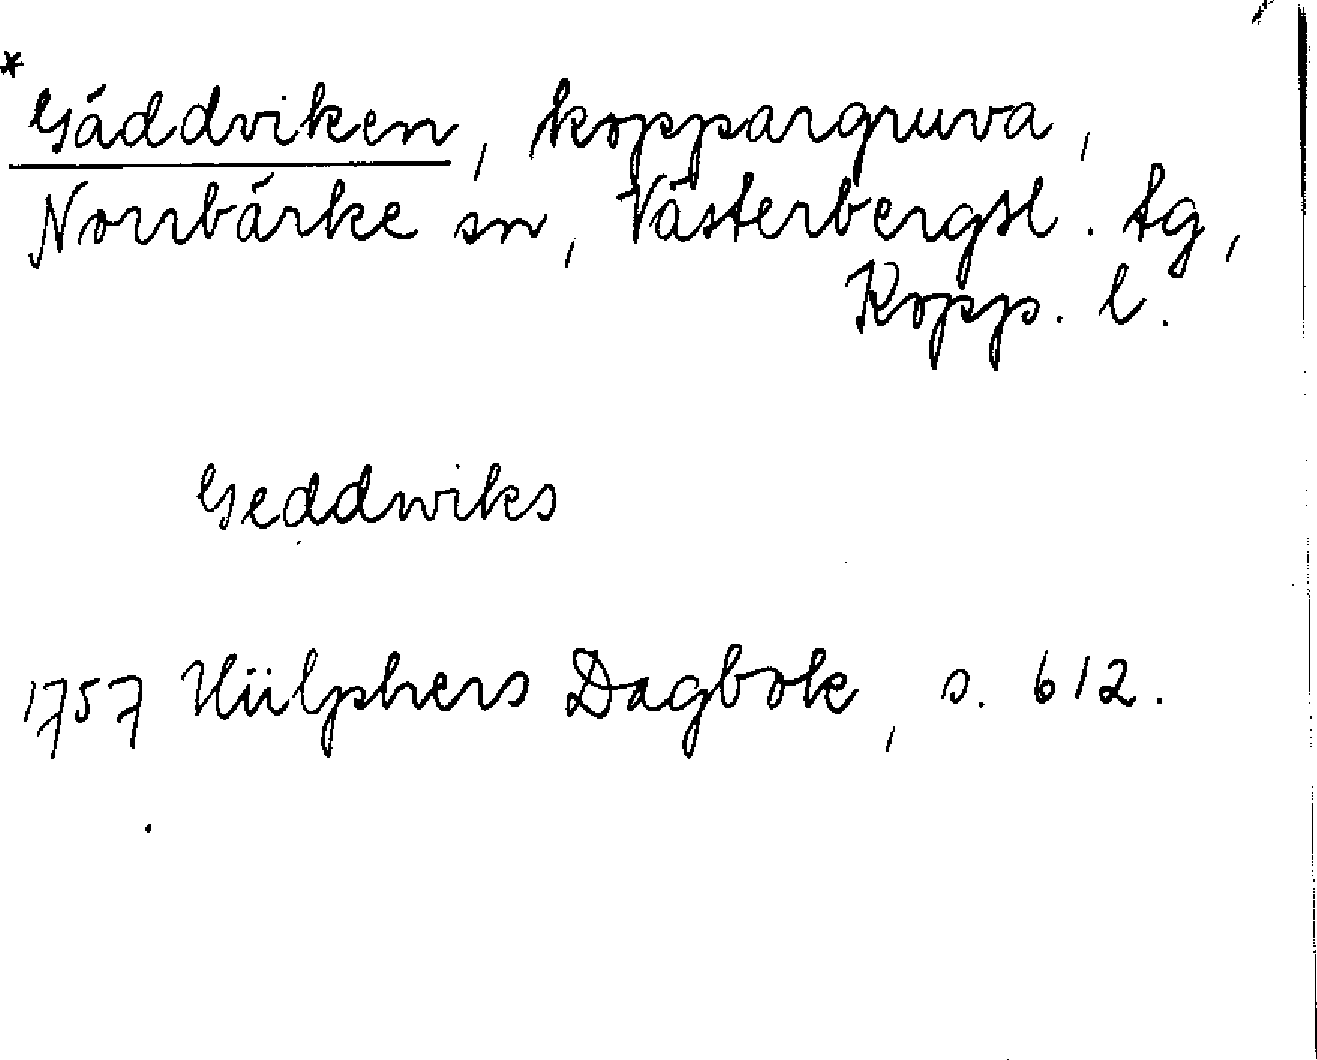 * Gäddviken, koppargruva,
Norrbärke sn, Västerbergsl. tg,
Kopp. l.
Geddwiks
1757 Hülphers Dagbok, s. 612.